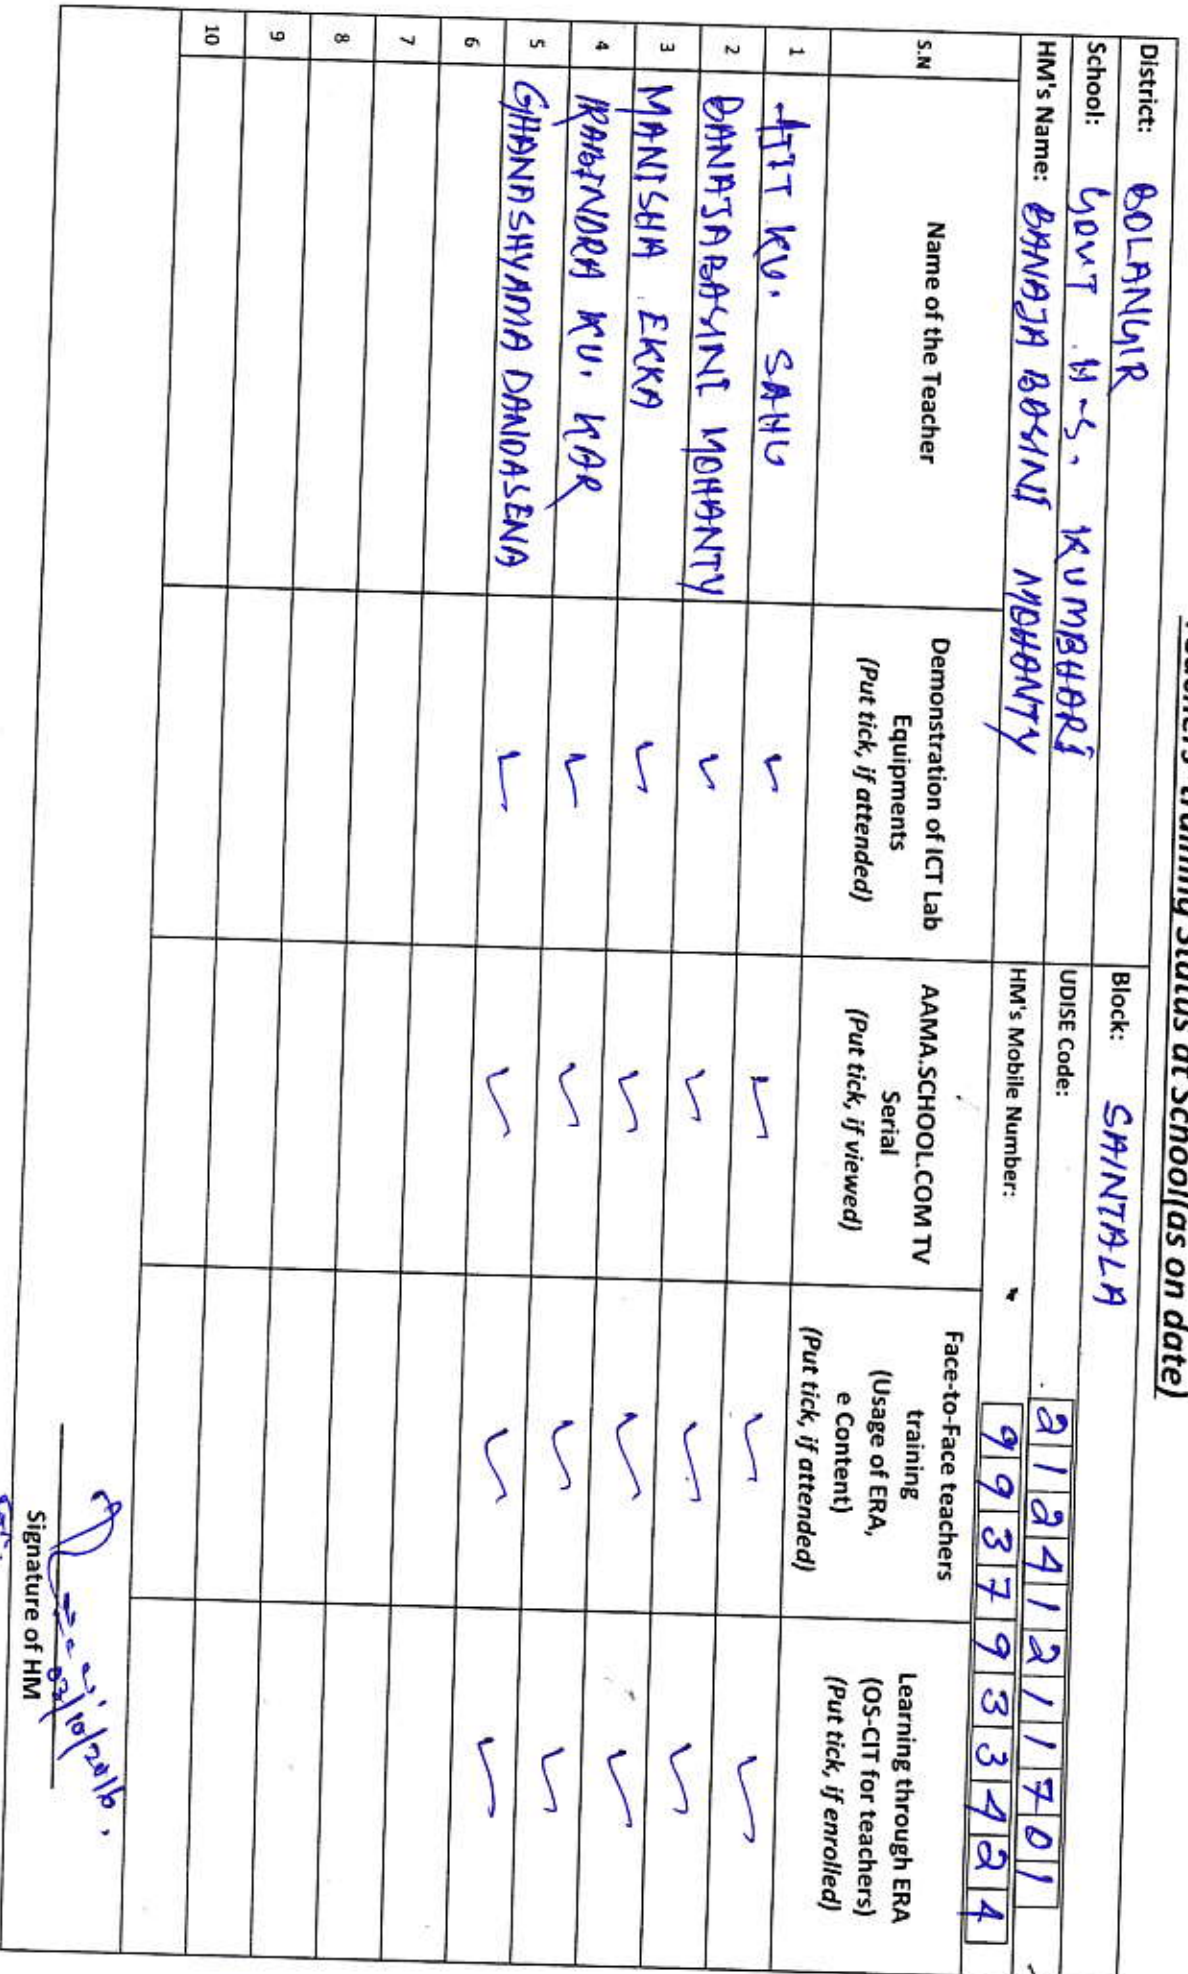 Teachers' training Status at School(as on date)
District: BOLANGIR Block: SAINTALA
School: GOVT H.S. KUMBHARI UDISE Code: 21241211701
HM's Name: BANAJA BASINI MOHANTY HM's Mobile Number: 9937933424
S.N Name of the Teacher Demonstration of ICT Lab Equipments (Put tick, if attended) AAMA.SCHOOL.COM TV Serial (Put tick, if viewed) Face-to-Face teachers training (Usage of ERA, e Content) (Put tick, if attended) Learning through ERA (OS-CIT for teachers) (Put tick, if enrolled)
1 AJIT KU. SAHU ✓ ✓ ✓ ✓
2 BANAJABASINI MOHANTY ✓ ✓ ✓ ✓
3 MANISHA EKKA ✓ ✓ ✓ ✓
4 RABINDRA KU. KAR ✓ ✓ ✓ ✓
5 GHANASHYAMA DANDASENA ✓ ✓ ✓ ✓
6
7
8
9
10
03/10/2016.
Signature of HM